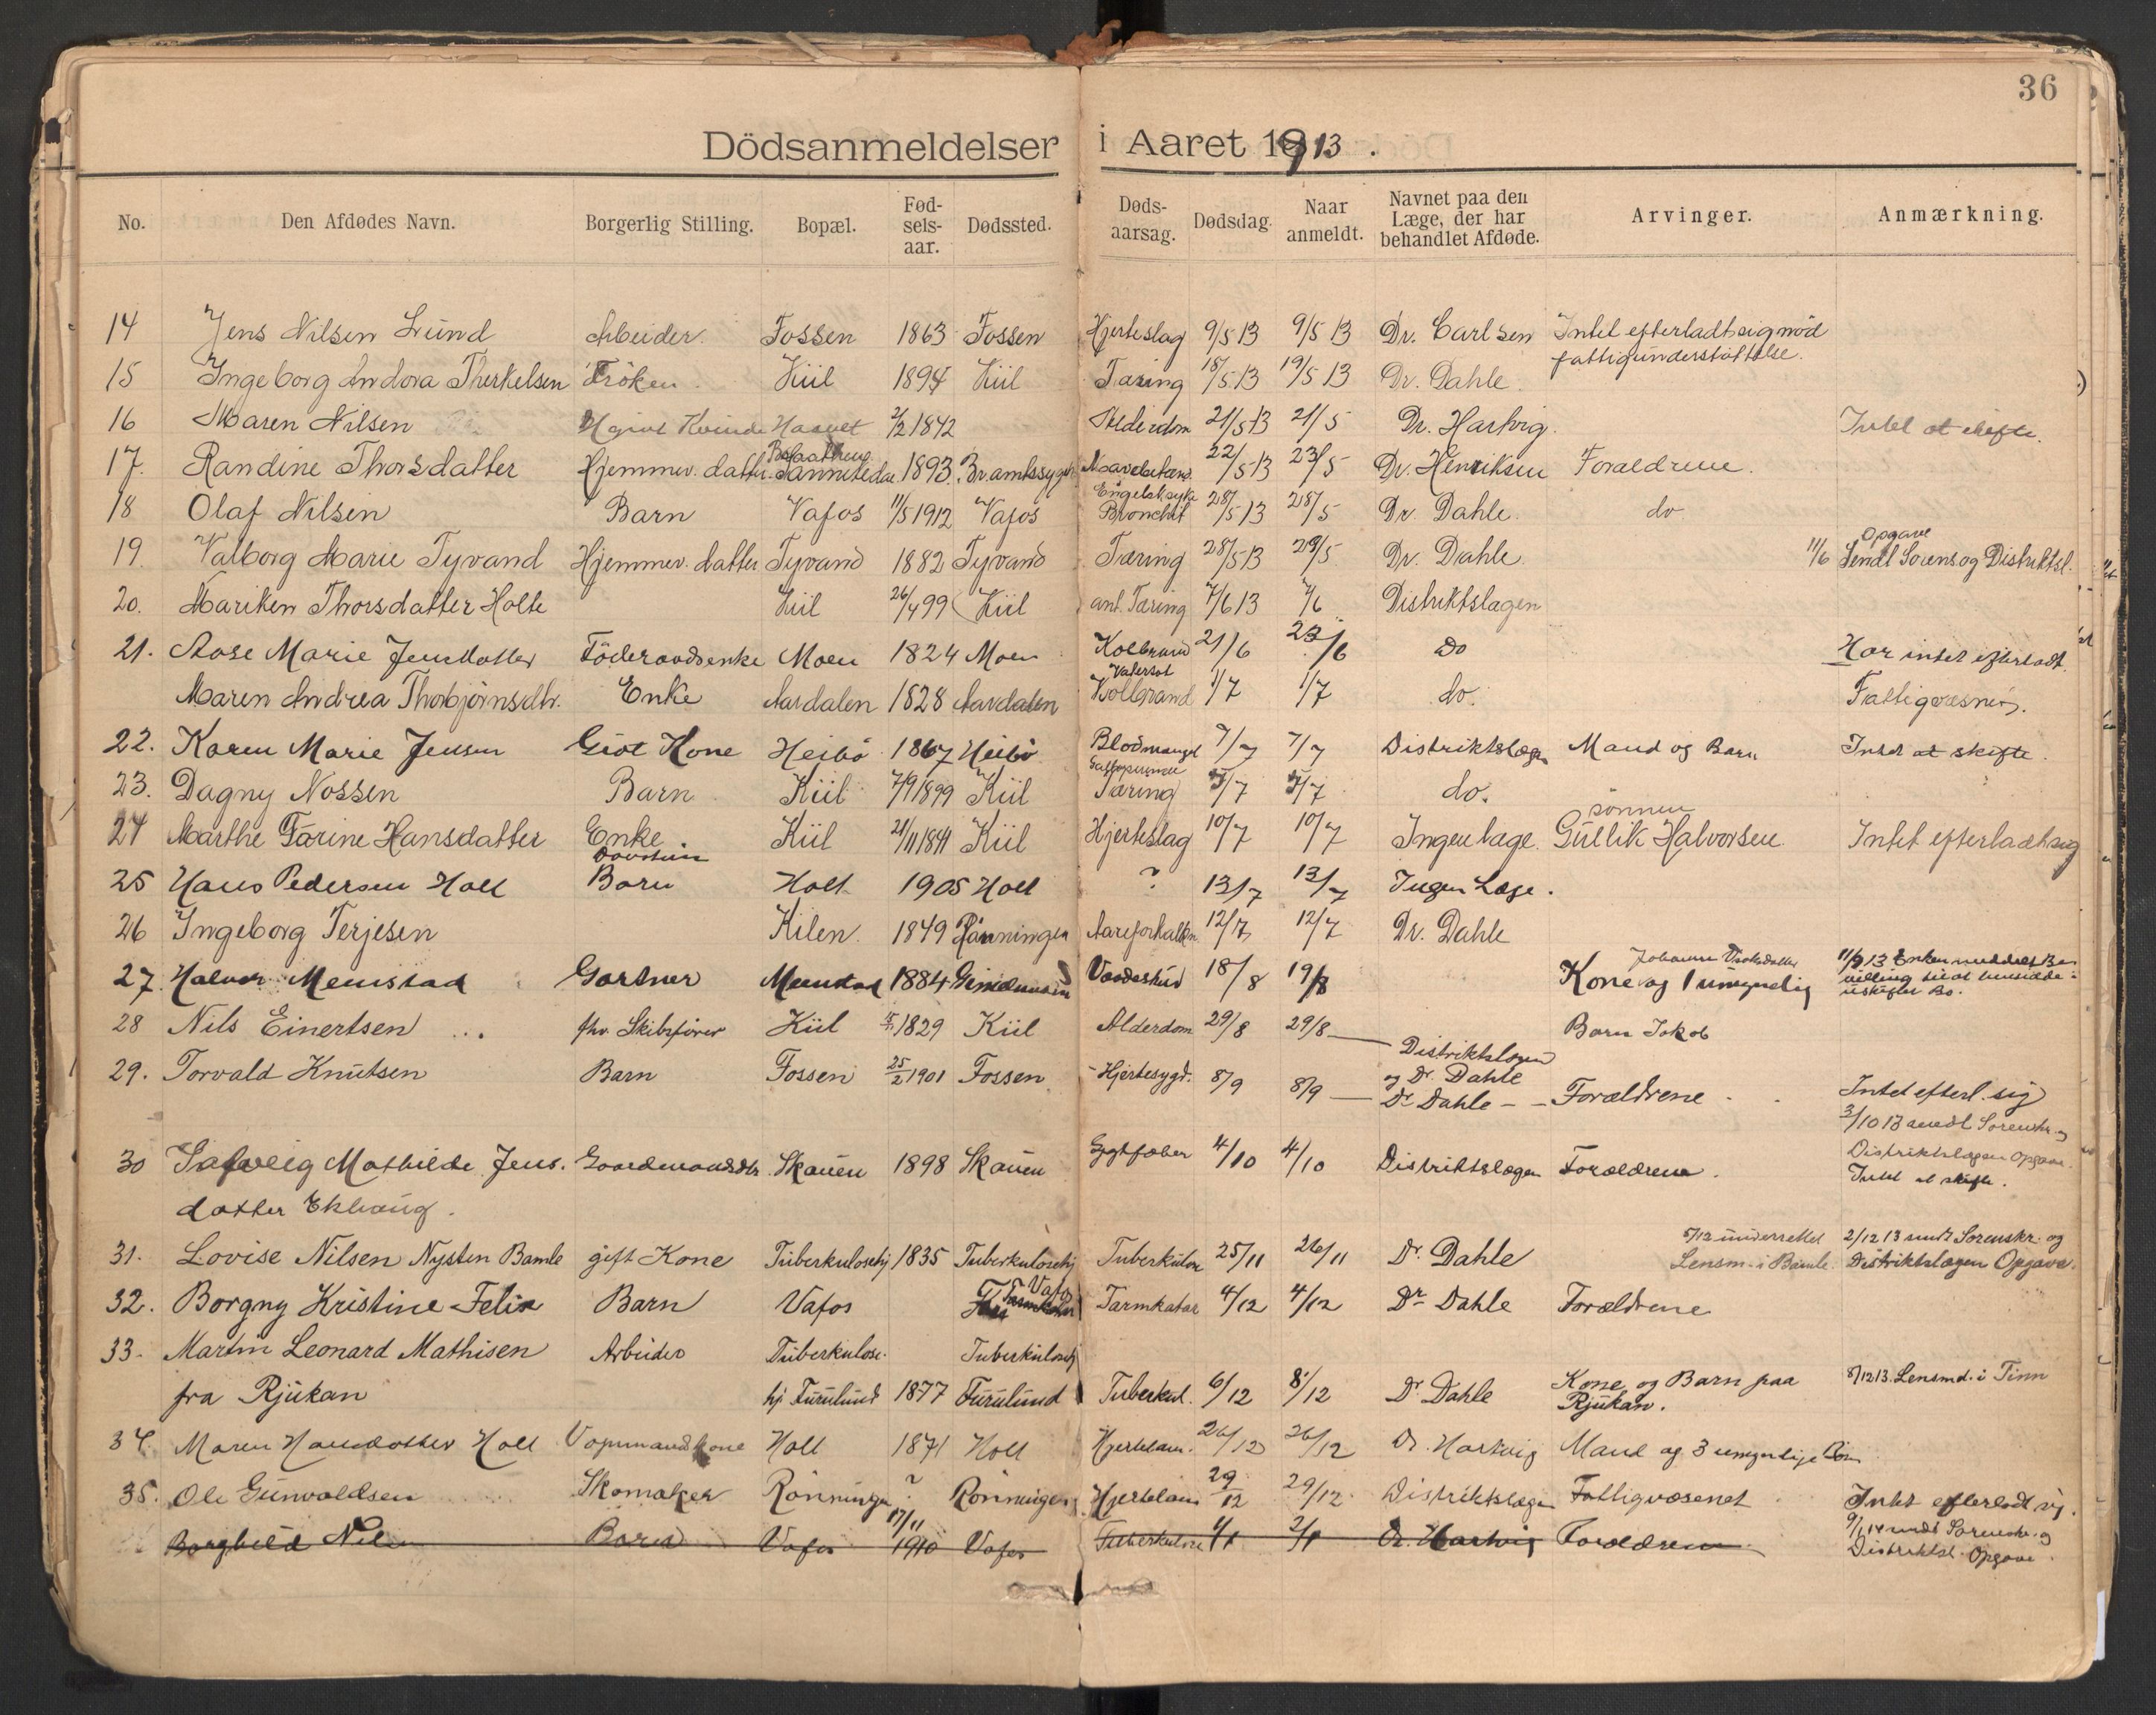 36
Dödsanmeldelser i Aaret 1913.
No. Den Afdødes Navn. Borgerlig Stilling. Bopæl. Fød-sels-aar. Dødssted. Døds-aarsag. Dødsdag. Naar anmeldt. Navnet paa den Læge, der har behandlet Afdøde. Arvinger. Anmærkning.
14 Jens Nilsen Lund Arbeider. Fossen 1863 Fossen Hjerteslag 9/5 13 9/5 13 Dr. Carlsen Intet efterladt sig nöd
fattigunderstöttelse.
15 Ingeborg Andora Therkelsen Fröken. Kiil 1894 Kiil Tæring 18/5 13 19/5 13 Dr. Dahle.
16 Maren Nilsen Ugivt Kvinde 2/2 1842 Alderdom 21/5 13 21/5 Dr. Hartvig. Intet at skifte.
17. Randine Thorsdatter Hjemmev. datter 1893. Br. amtssygeh. 22/5 13 23/5 Dr. Henriksen Foraeldrene.
18 Olaf Nilsen Barn Vafos 11/5 1912 Vafos Engelsk syke
Bronchit 28/5 13 28/5 Dr. Dahle. do
19. Valborg Marie Tyvand Hjemmev. datter Tyvand 1882 Tyvand Tæring 28/5 13 29/5 Dr. Dahle. 11/6 Opgave
Sendt Sorens og Distriktsl.
20. Mariken Thorsdatter Holte Kiil 26/4 99 Kiil ant. Tæring 7/6 13 7/6 Distriktslægen
21. Aase Marie Jensdatter Föderaadsenke Moen 1824 Moen Kolbrand 21/6 23/6 do Har intet efterladt.
Maren Andrea Thorbjörnsdtr. Enke Aardalen 1828 Aardalen Kolbrand 1/7 1/7 do. Fattigvæsnet.
22. Karen Marie Jensen Givt Kone Heibö 1867 Heibö Blodmangel 7/7 7/7 Distriktslægen Mand og Barn Intet at skifte.
23. Dagny Nossen Barn Kiil 7/9 1899 Kiil Tæring 5/7 5/7 do.
24 Marthe Tarine Hansdatter Enke Kiil 21/11 1841 Kiil Hjerteslag 10/7 10/7 Ingen læge. sönnen
Gullik Halvorsen. Intet efterladt sig
25 Hans Pedersen Holt Barn Holt 1905 Holt ? 13/7 13/7 Ingen Læge.
26 Ingeborg Terjesen Kilen. 1849 Rönningen Aareforkalkn. 12/7 12/7 Dr. Dahle
27. Halvor Menstad Gartner Menstad 1884 Vaadeskud 18/8 19/8 Kone og 1 umyndig 11/9 13 Enken meddelt Be-
villing til at hensidde i
uskiftet Bo.
28 Nils Einertsen fhv. Skibsförer Kiil 1829 Kiil Alderdom 29/8 29/8 — Distriktslægen
og Dr. Dahle Barn Jakob
29. Torvald Knutsen Barn Fossen 25/2 1901 Fossen Hjertesygd. 8/9 8/9 — Dr Dahle — Forældrene Intet efterl. sig
30 Solveig Mathilde Jens. Gaardmandsdtr. Skauen 1898 Skauen Gigtfeber 4/10 4/10 Distriktslægen Forældrene. 3/10 13 sendt Sorenskr. og
Distriktslægen Opgave.
Intet at skifte.
datter Ekhaug.
31. Lovise Nilsen Nysten Bamle gift Kone Tuberkulosehj 1835 Tuberkulosehj Tuberkulose 25/11 26/11 Dr. Dahle 5/12 underrettet
Lensm. i Bamle. 2/12 13 sendt Sorenskr. og
Distriktslægen Opgave.
32. Borgny Kristine Felix Barn Vafos Vafos Tarmkatar 4/12 4/12 Dr Dahle Forældrene
33. Martin Leonard Mathisen Arbeider Tuberkulose. Tuberkulosehj
fra Rjukan hj. Furulund 1877 Furulund Tuberkul. 6/12 8/12 Dr Dahle Kone og Barn paa
Rjukan. 8/12 13. Lensmd. i Tinn
34. Maren Hansdatter Holt Holt 1871 Holt Hjertelam. 26/12 26/12 Dr. Hartvig Mand og 3 umyndige Börn
35. Ole Gunvaldsen Skomaker Rönningen ? Rönningen Hjertelam 29/12 29/12 Distriktslægen Fattigvæsenet Intet efterladt sig.
Borghild Nilsen Barn Vafos 17/11 1910 Vafos Tuberkulose 1/1 2/1 Dr. Hartvig Forældrene 9/1 14 sendt Sorenskr. og
Distriktsl. Opgave.